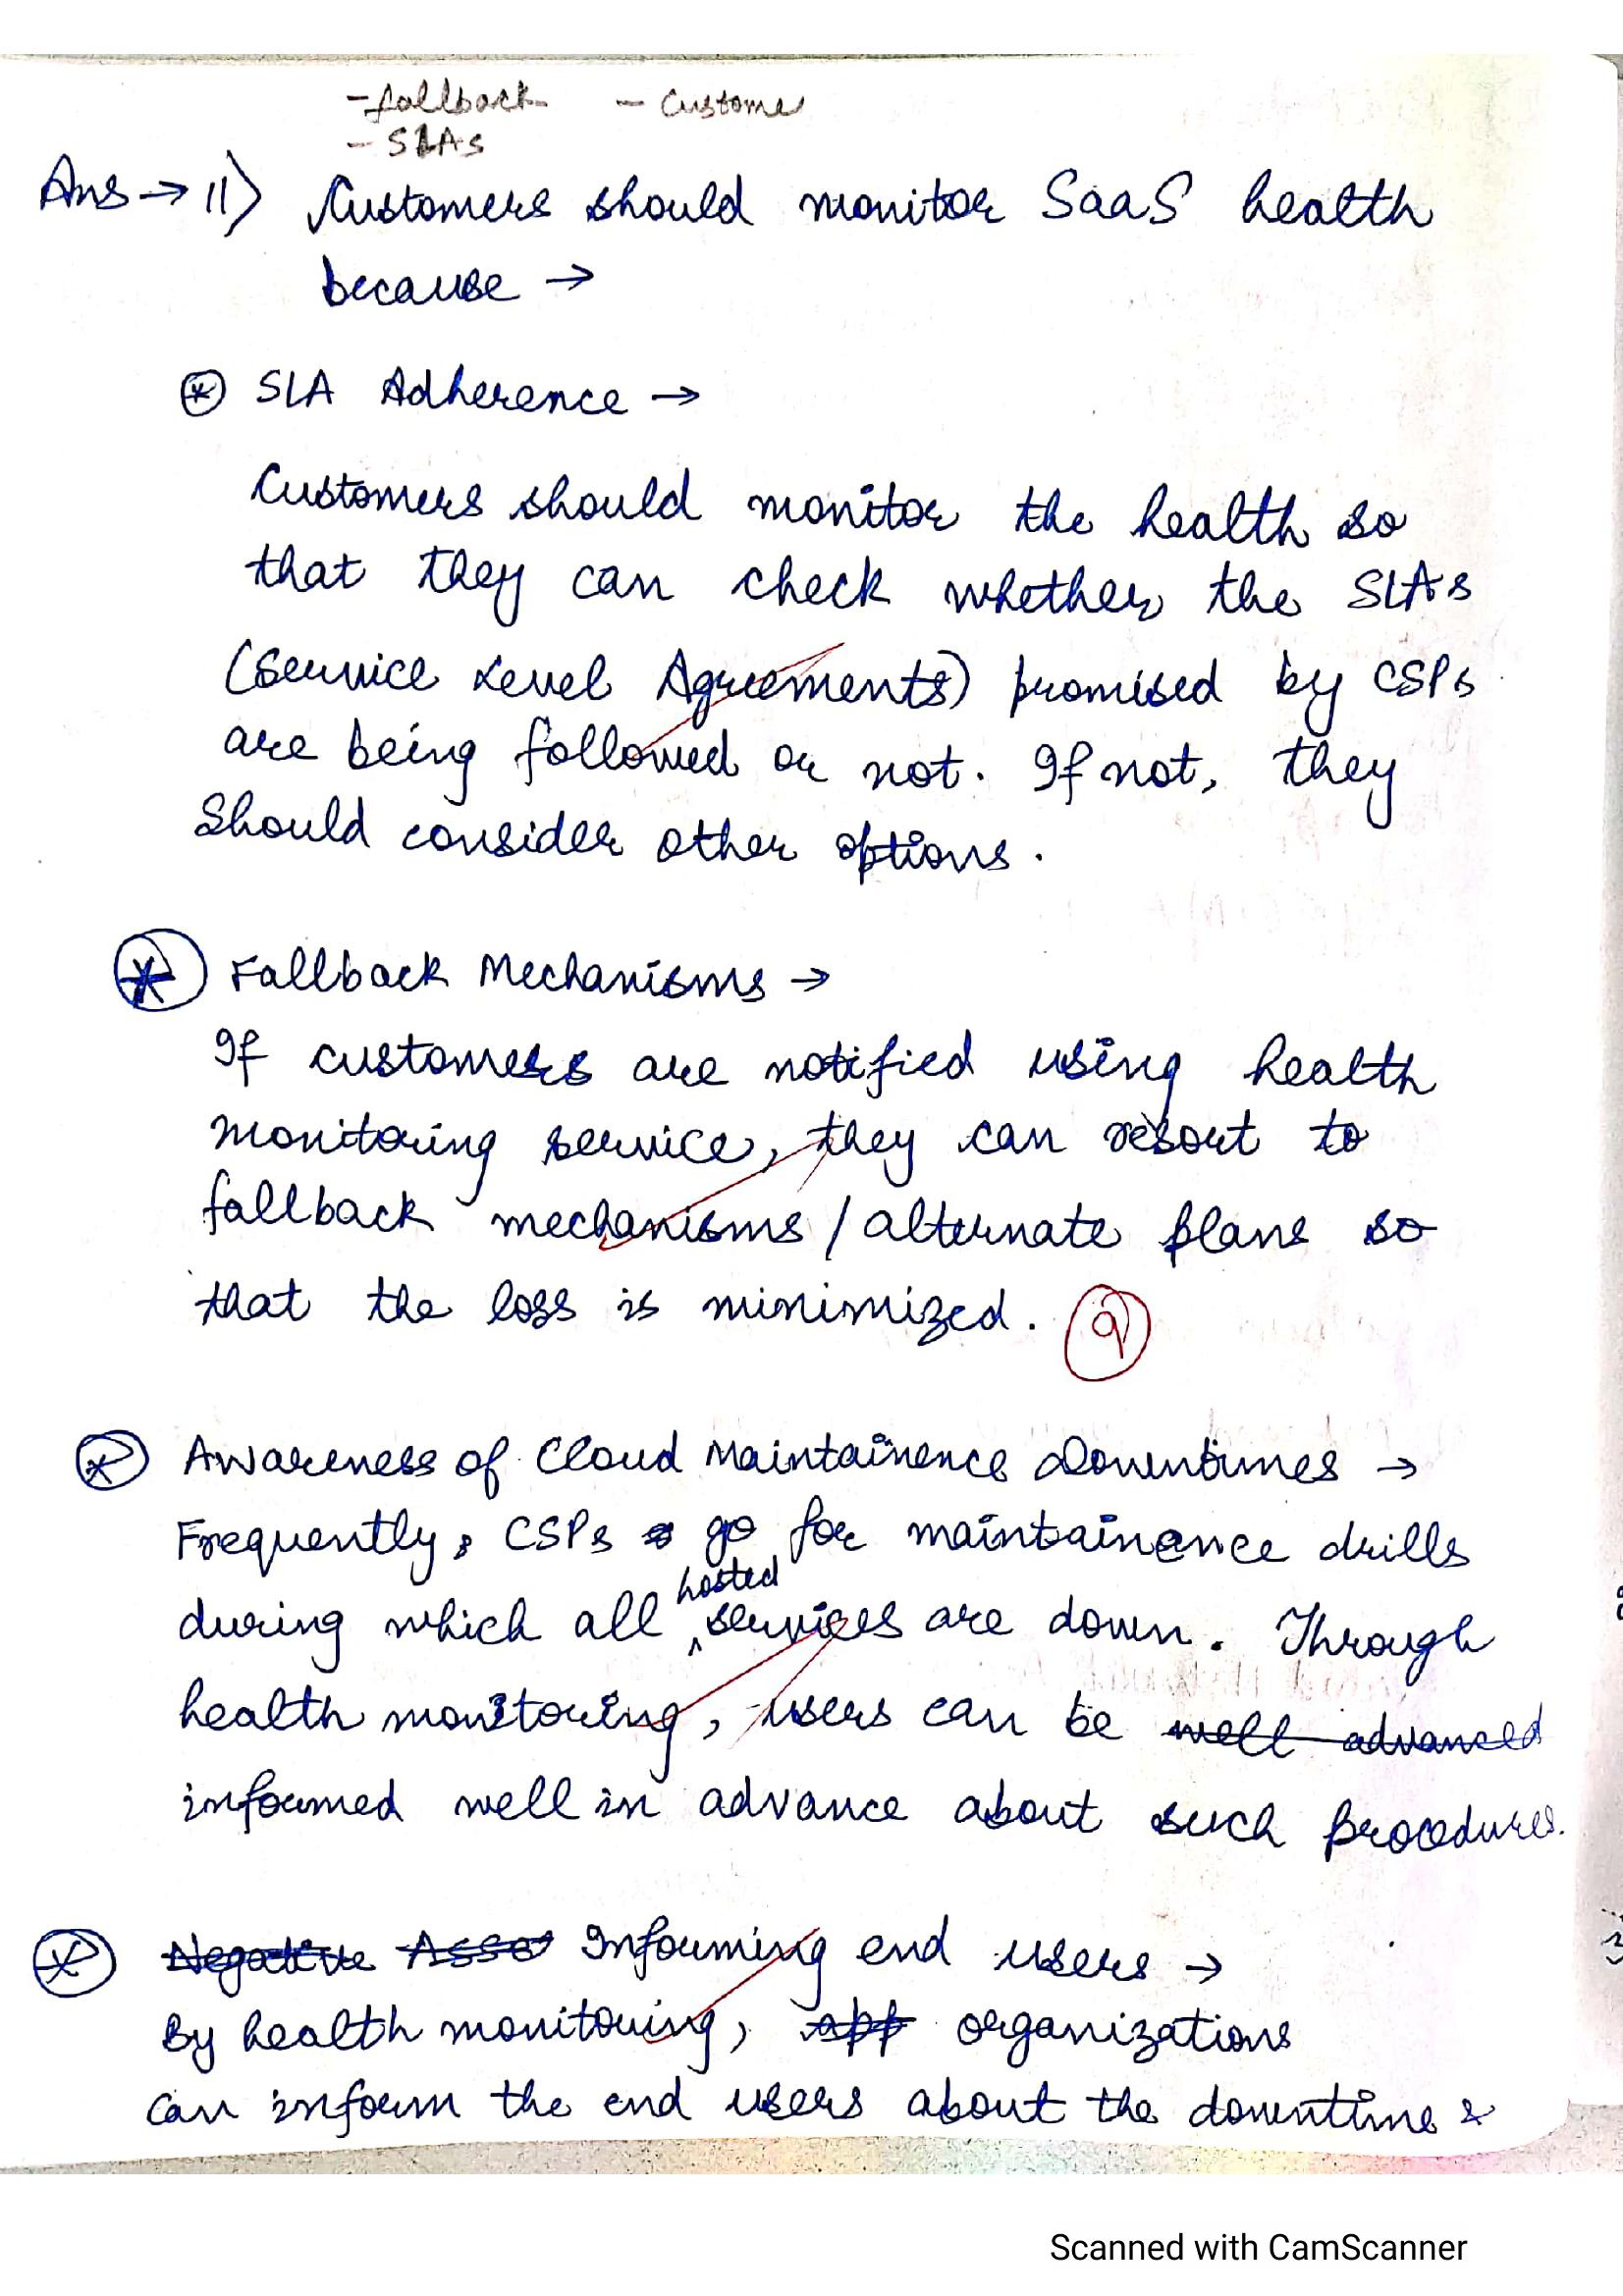 - fallback - Custome
- SLAs
Ans → 11) Customers should monitor SaaS health
because →
* SLA Adherence →
Customers should monitor the health so
that they can check whether the SLAs
(Service Level Agreements) promised by CSPs
are being followed or not. If not, they
should consider other options.
* Fallback Mechanisms →
If customers are notified using health
monitoring service, they can resort to
fallback mechanisms / alternate plans so
that the loss is minimized. 9
* Awareness of Cloud Maintainence Downtimes →
Frequently, CSPs go for maintainence drills
hosted
during which all ^ services are down. Through
health monitoring, users can be well advanced
informed well in advance about such procedures.
* Negative Asse Informing end users →
By health monitoring, app organizations
can inform the end users about the downtime &
Scanned with CamScanner